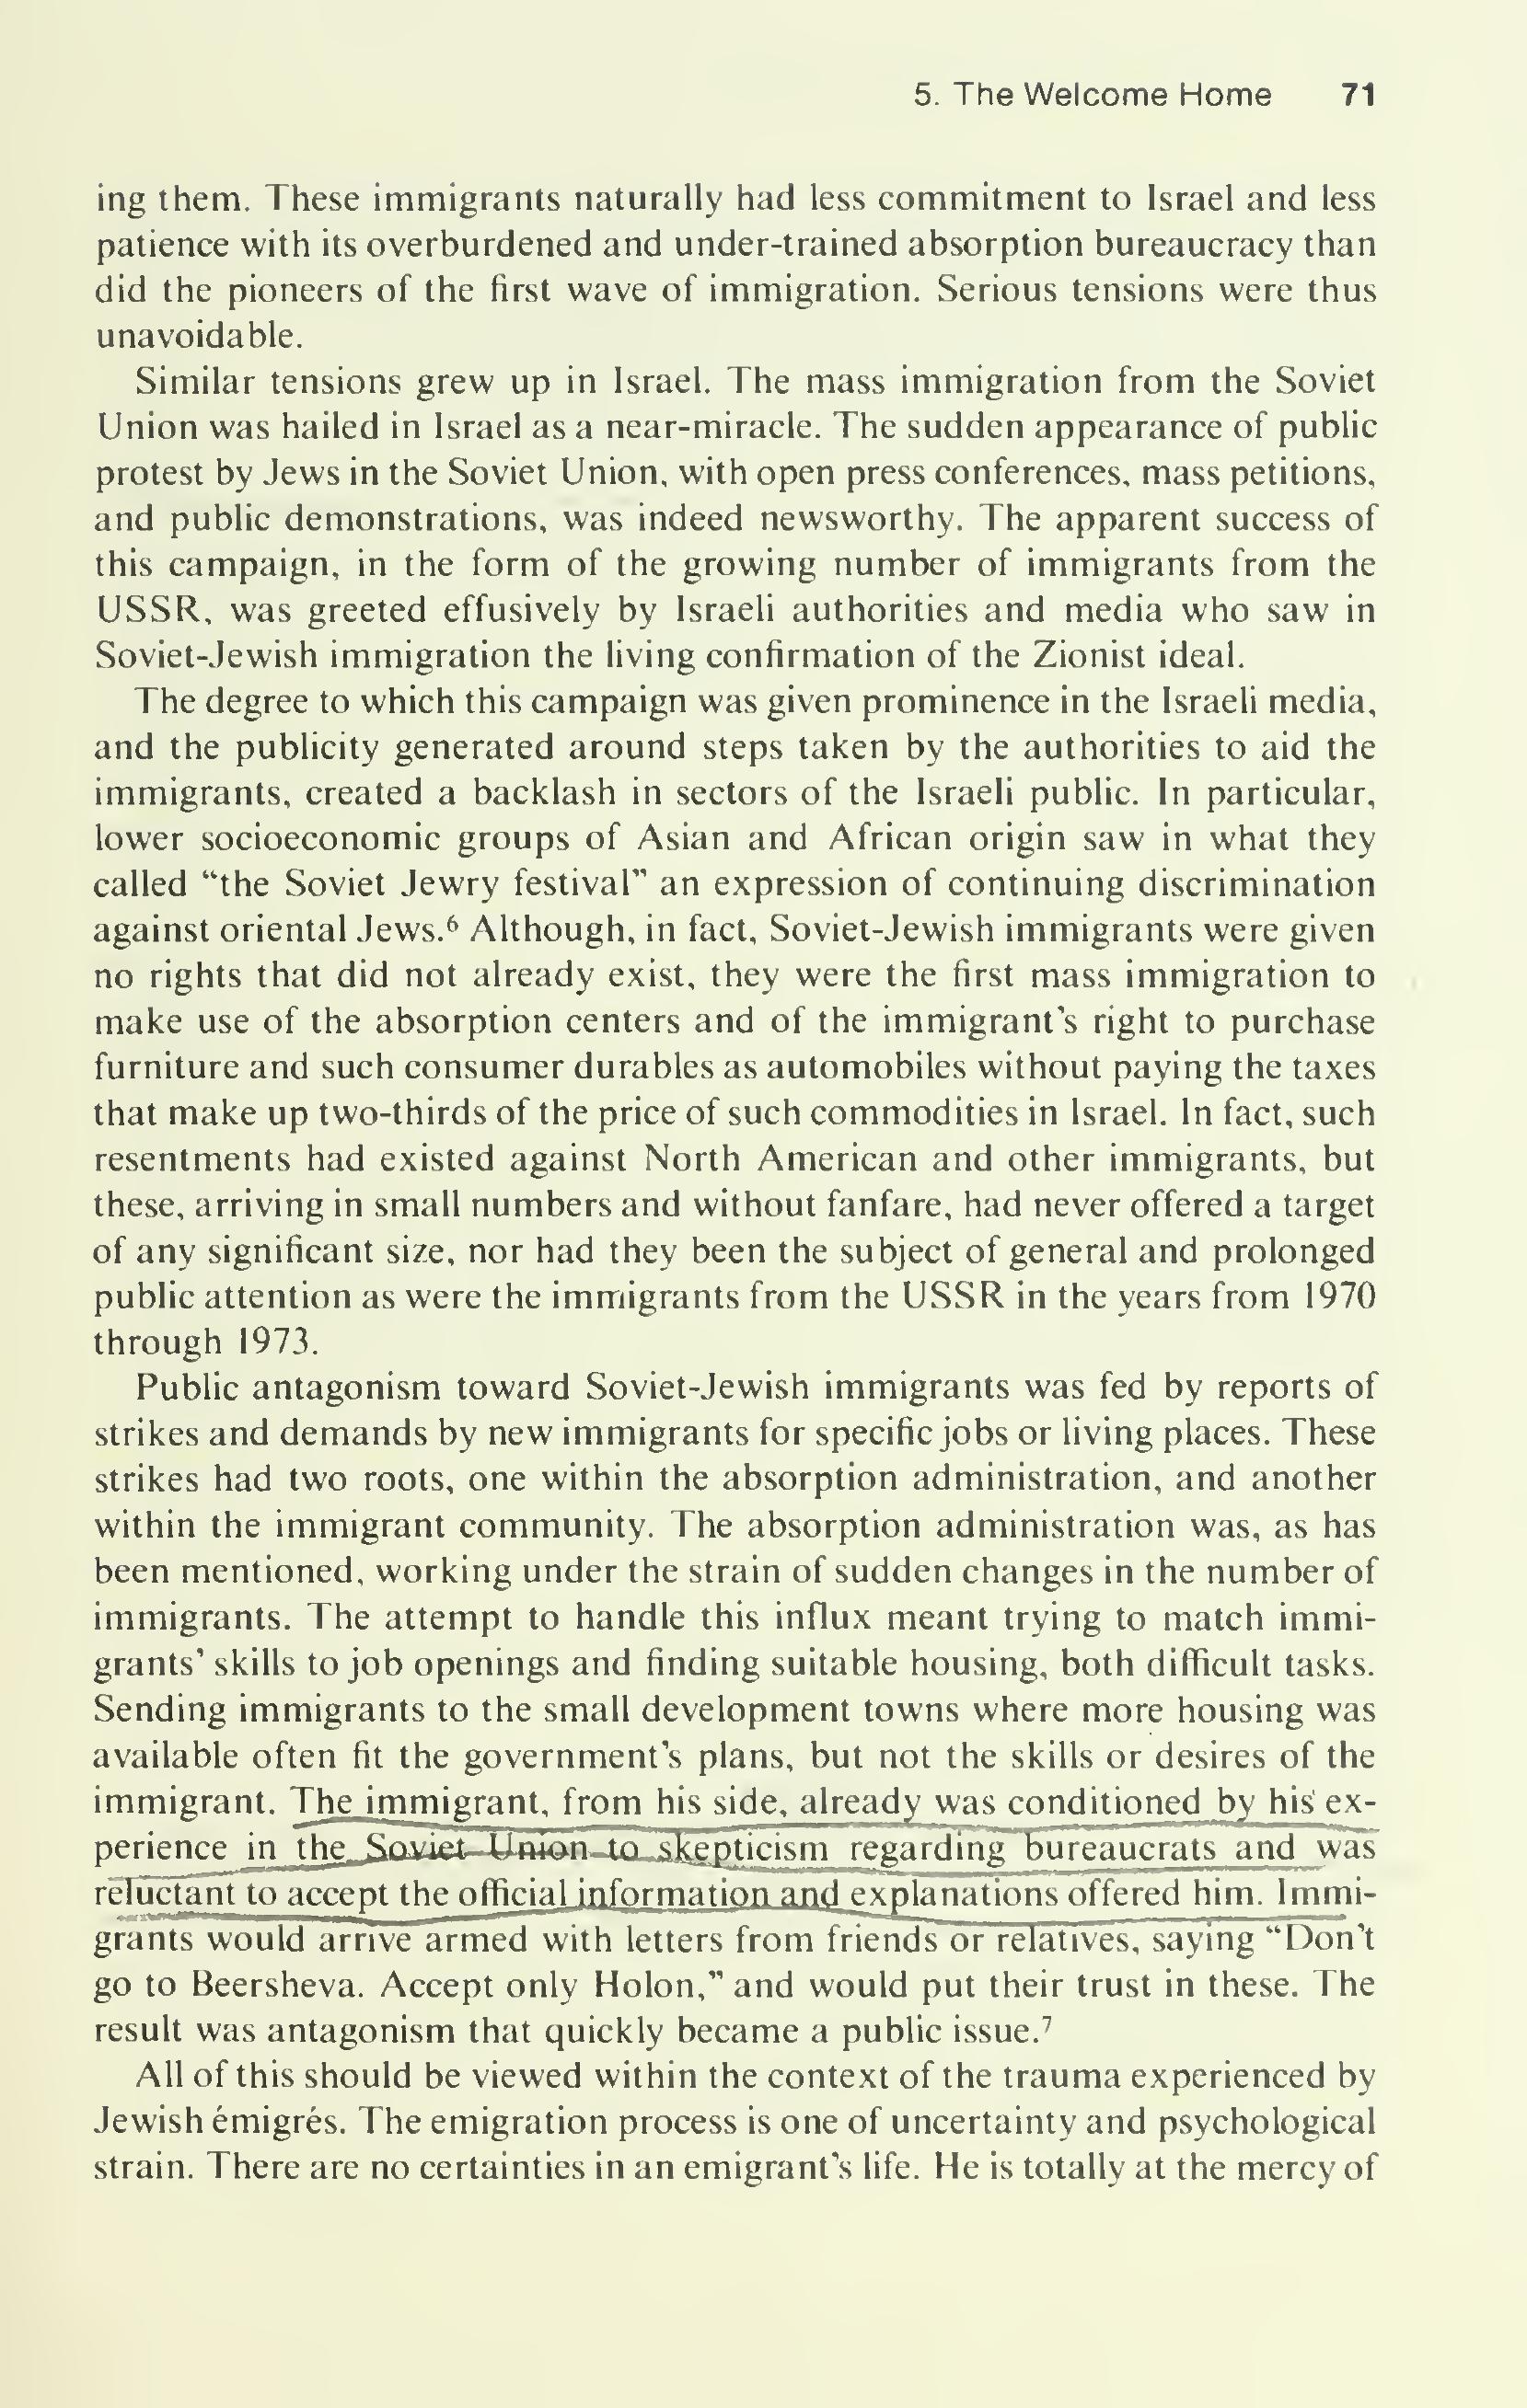 5. The Welcome Home 71
ing them. These immigrants naturally had less commitment to Israel and less
patience with its overburdened and under-trained absorption bureaucracy than
did the pioneers of the first wave of immigration. Serious tensions were thus
unavoidable.
Similar tensions grew up in Israel. The mass immigration from the Soviet
Union was hailed in Israel as a near-miracle. The sudden appearance of public
protest by Jews in the Soviet Union, with open press conferences, mass petitions,
and public demonstrations, was indeed newsworthy. The apparent success of
this campaign, in the form of the growing number of immigrants from the
USSR, was greeted effusively by Israeli authorities and media who saw in
Soviet-Jewish immigration the living confirmation of the Zionist ideal.
The degree to which this campaign was given prominence in the Israeli media,
and the publicity generated around steps taken by the authorities to aid the
immigrants, created a backlash in sectors of the Israeli public. In particular,
lower socioeconomic groups of Asian and African origin saw in what they
called “the Soviet Jewry festival” an expression of continuing discrimination
against oriental Jews.⁶ Although, in fact, Soviet-Jewish immigrants were given
no rights that did not already exist, they were the first mass immigration to
make use of the absorption centers and of the immigrant's right to purchase
furniture and such consumer durables as automobiles without paying the taxes
that make up two-thirds of the price of such commodities in Israel. In fact, such
resentments had existed against North American and other immigrants, but
these, arriving in small numbers and without fanfare, had never offered a target
of any significant size, nor had they been the subject of general and prolonged
public attention as were the immigrants from the USSR in the years from 1970
through 1973.
Public antagonism toward Soviet-Jewish immigrants was fed by reports of
strikes and demands by new immigrants for specific jobs or living places. These
strikes had two roots, one within the absorption administration, and another
within the immigrant community. The absorption administration was, as has
been mentioned, working under the strain of sudden changes in the number of
immigrants. The attempt to handle this influx meant trying to match immi-
grants' skills to job openings and finding suitable housing, both difficult tasks.
Sending immigrants to the small development towns where more housing was
available often fit the government's plans, but not the skills or desires of the
immigrant. The immigrant, from his side, already was conditioned by his ex-
perience in the Soviet Union to skepticism regarding bureaucrats and was
reluctant to accept the official information and explanations offered him. Immi-
grants would arrive armed with letters from friends or relatives, saying “Don't
go to Beersheva. Accept only Holon,” and would put their trust in these. The
result was antagonism that quickly became a public issue.⁷
All of this should be viewed within the context of the trauma experienced by
Jewish émigrés. The emigration process is one of uncertainty and psychological
strain. There are no certainties in an emigrant's life. He is totally at the mercy of